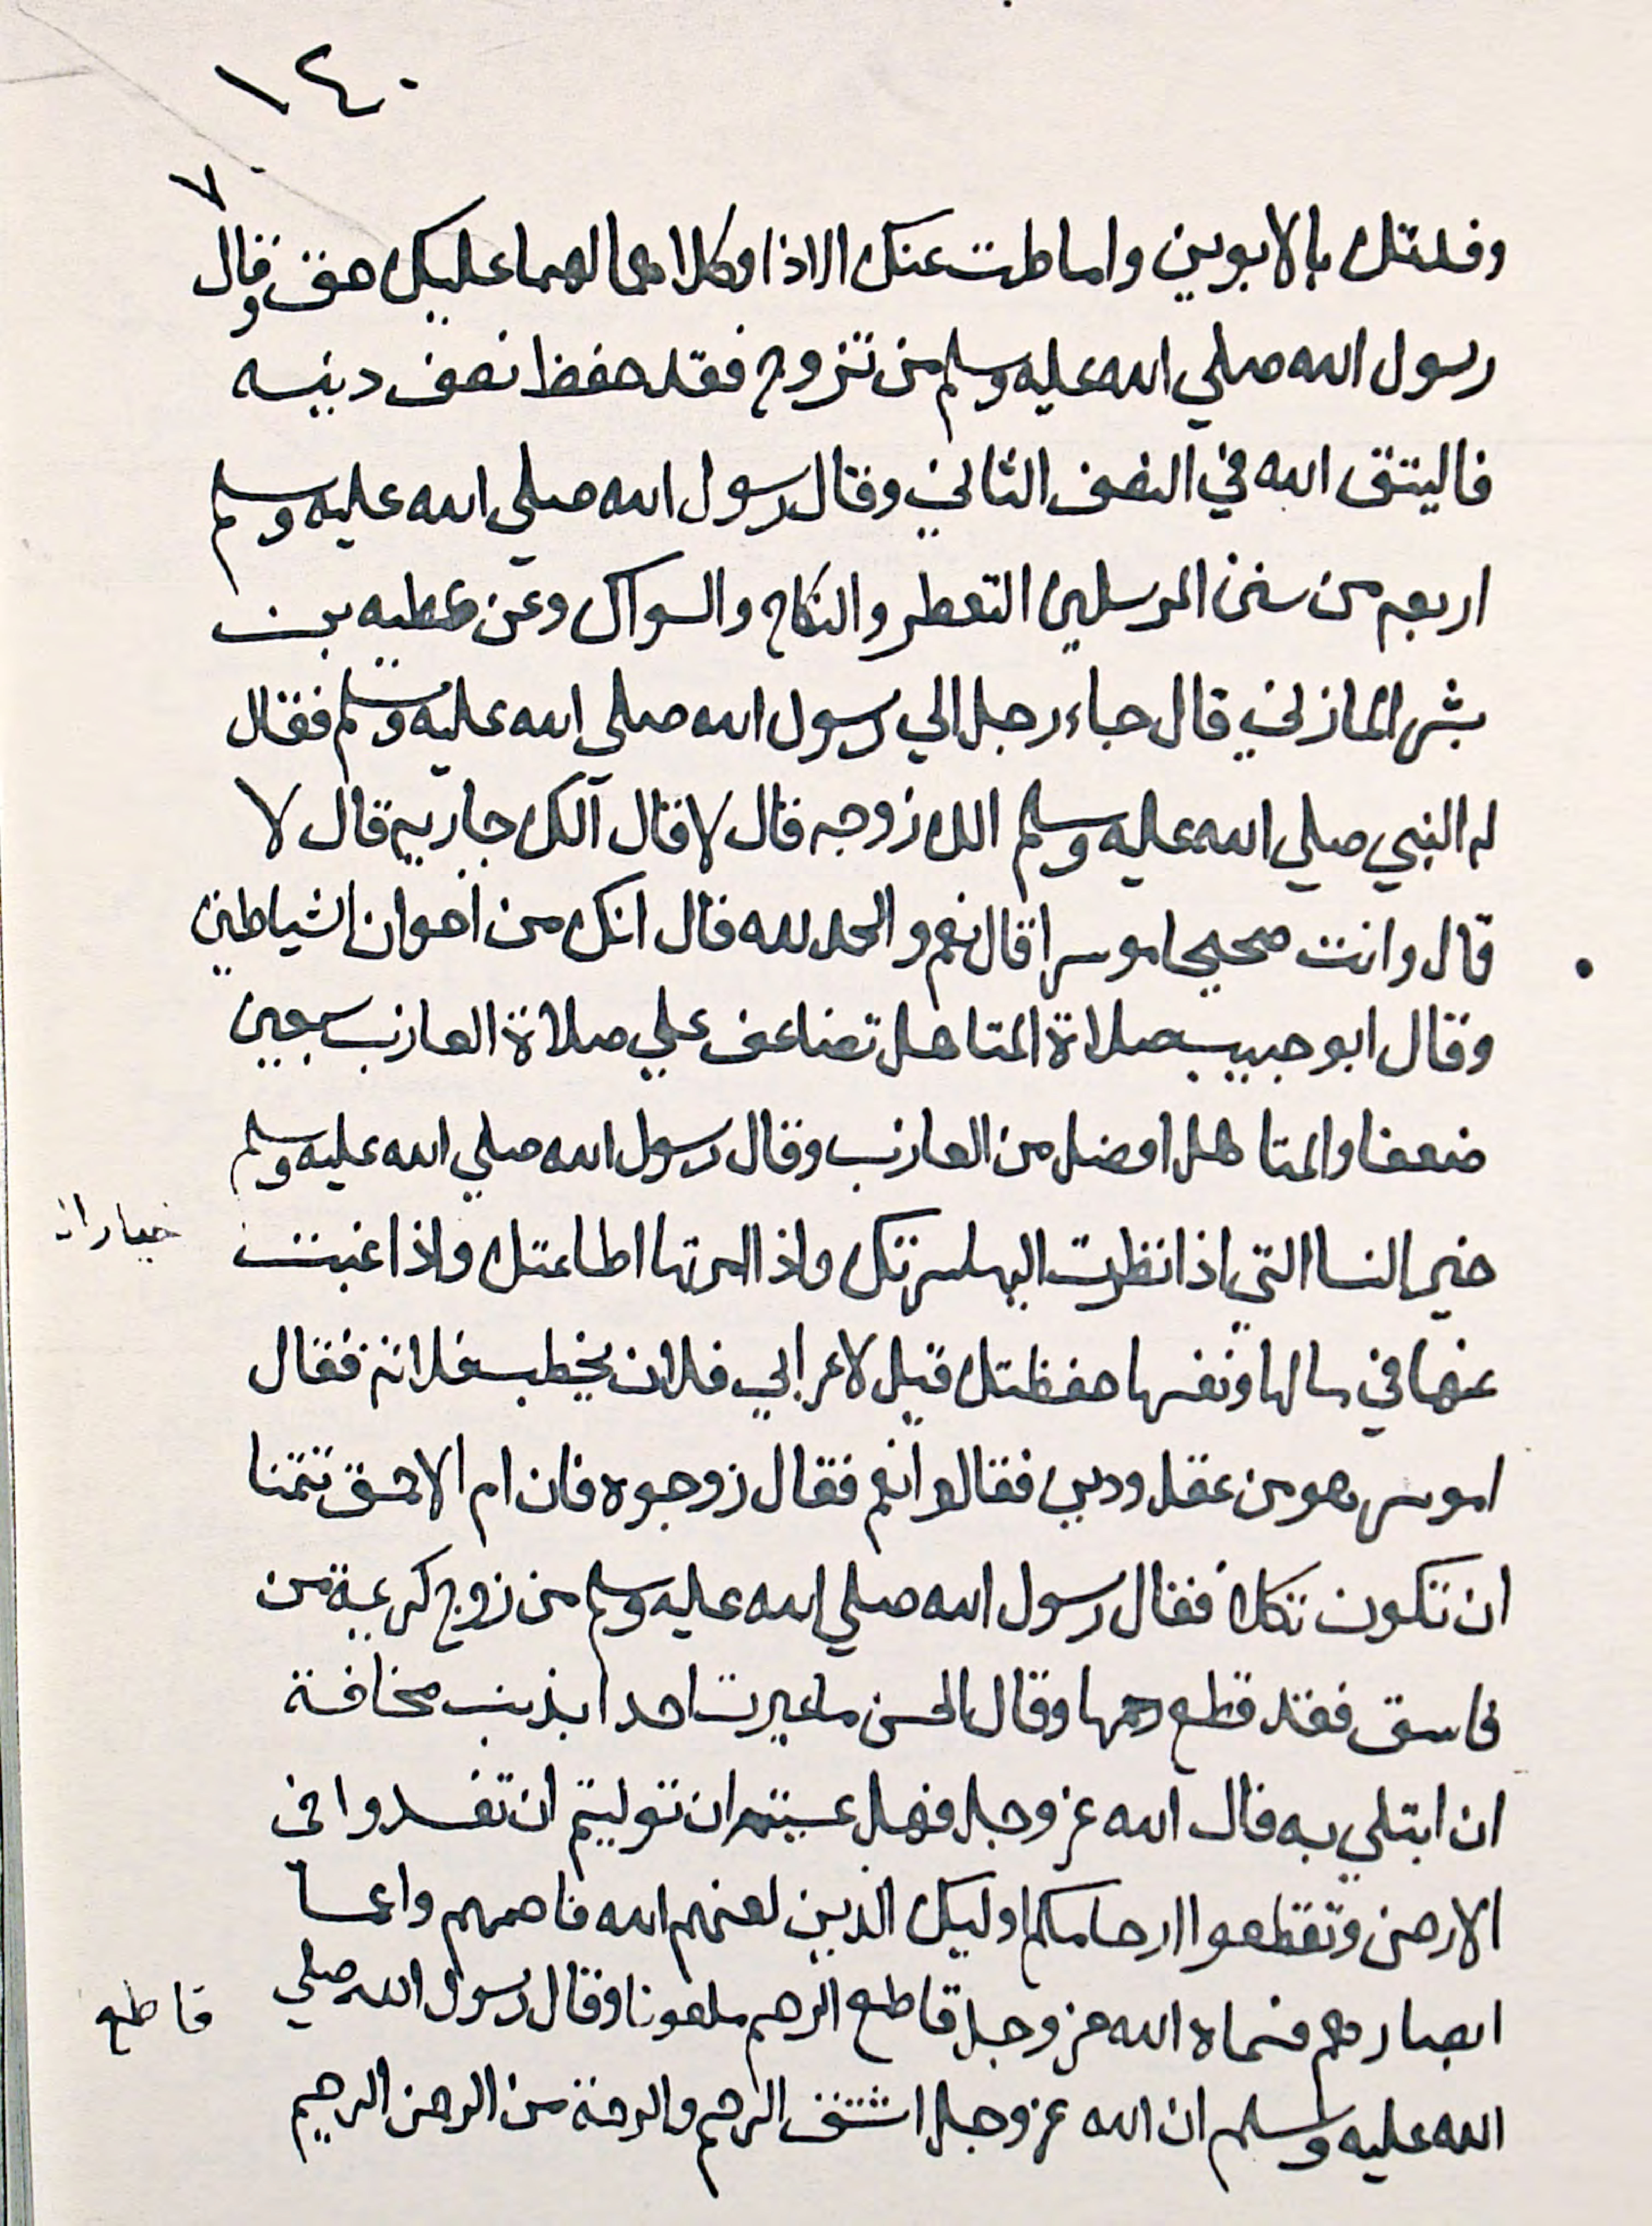 ١٤٠
٧٠
وفدتك بالابوين واماطت عنك الاذا وكلاهما لهما عليك حق وقال
رسول الله صلي الله عليه وسلم من تزوج فقد حفظ نصف دينه
فاليتق الله في النصف الثاني وقال رسول الله صلي الله عليه وسلم
اربع من سنن المرسلين التعطر والنكاح والسواك وعن عطيه بن
بشر المازني قال جاء رجل الي رسول الله صلي الله عليه وسلم فقال
له النبي صلي الله عليه وسلم الك زوجه قال لا قال آلك جاريه قال لا
قال وانت صحيحا موسرا قال نعم والحمد لله قال انك من اخوان الشياطين
وقال ابو حبيب صلاة المتاهل تضاعف علي صلاة العازب سبعين
ضعفا والمتاهل افضل من العازب وقال رسول الله صلي الله عليه وسلم
خير النسا التي اذا نظرت اليها سرتك واذا امرتها اطاعتك واذا غبت
عنها في مالها ونفسها حفظتك قيل لاعرابي فلان يخطب فلانه فقال
اموسر هو من عقل ودين فقالوا نعم فقال زوجوه فان ام الاحمق تتمنا
ان تكون ثكلا فقال رسول الله صلي الله عليه وسلم من زوج كريمة من
فاسق فقد قطع رحمها وقال الحسن ما عيرت احدا بذنب مخافة
ان ابتلي به قال الله عز وجل فهل عسيتم ان توليتم ان تفسدوا في
الارض وتقطعوا ارحامكم اوليك الذين لعنهم الله فاصمهم واعما
ابصارهم فسماه الله عز وجل قاطع الرحم ملعونا وقال رسول الله صلي
قاطع
الله عليه وسلم ان الله عز وجل اشتق الرحم والرحمة من الرحمن الرحيم